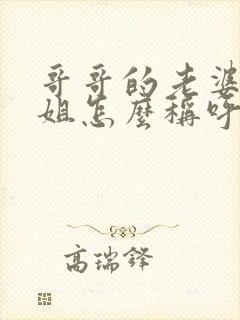 哥哥的老婆
姐怎麼稱呼
高瑞鋒